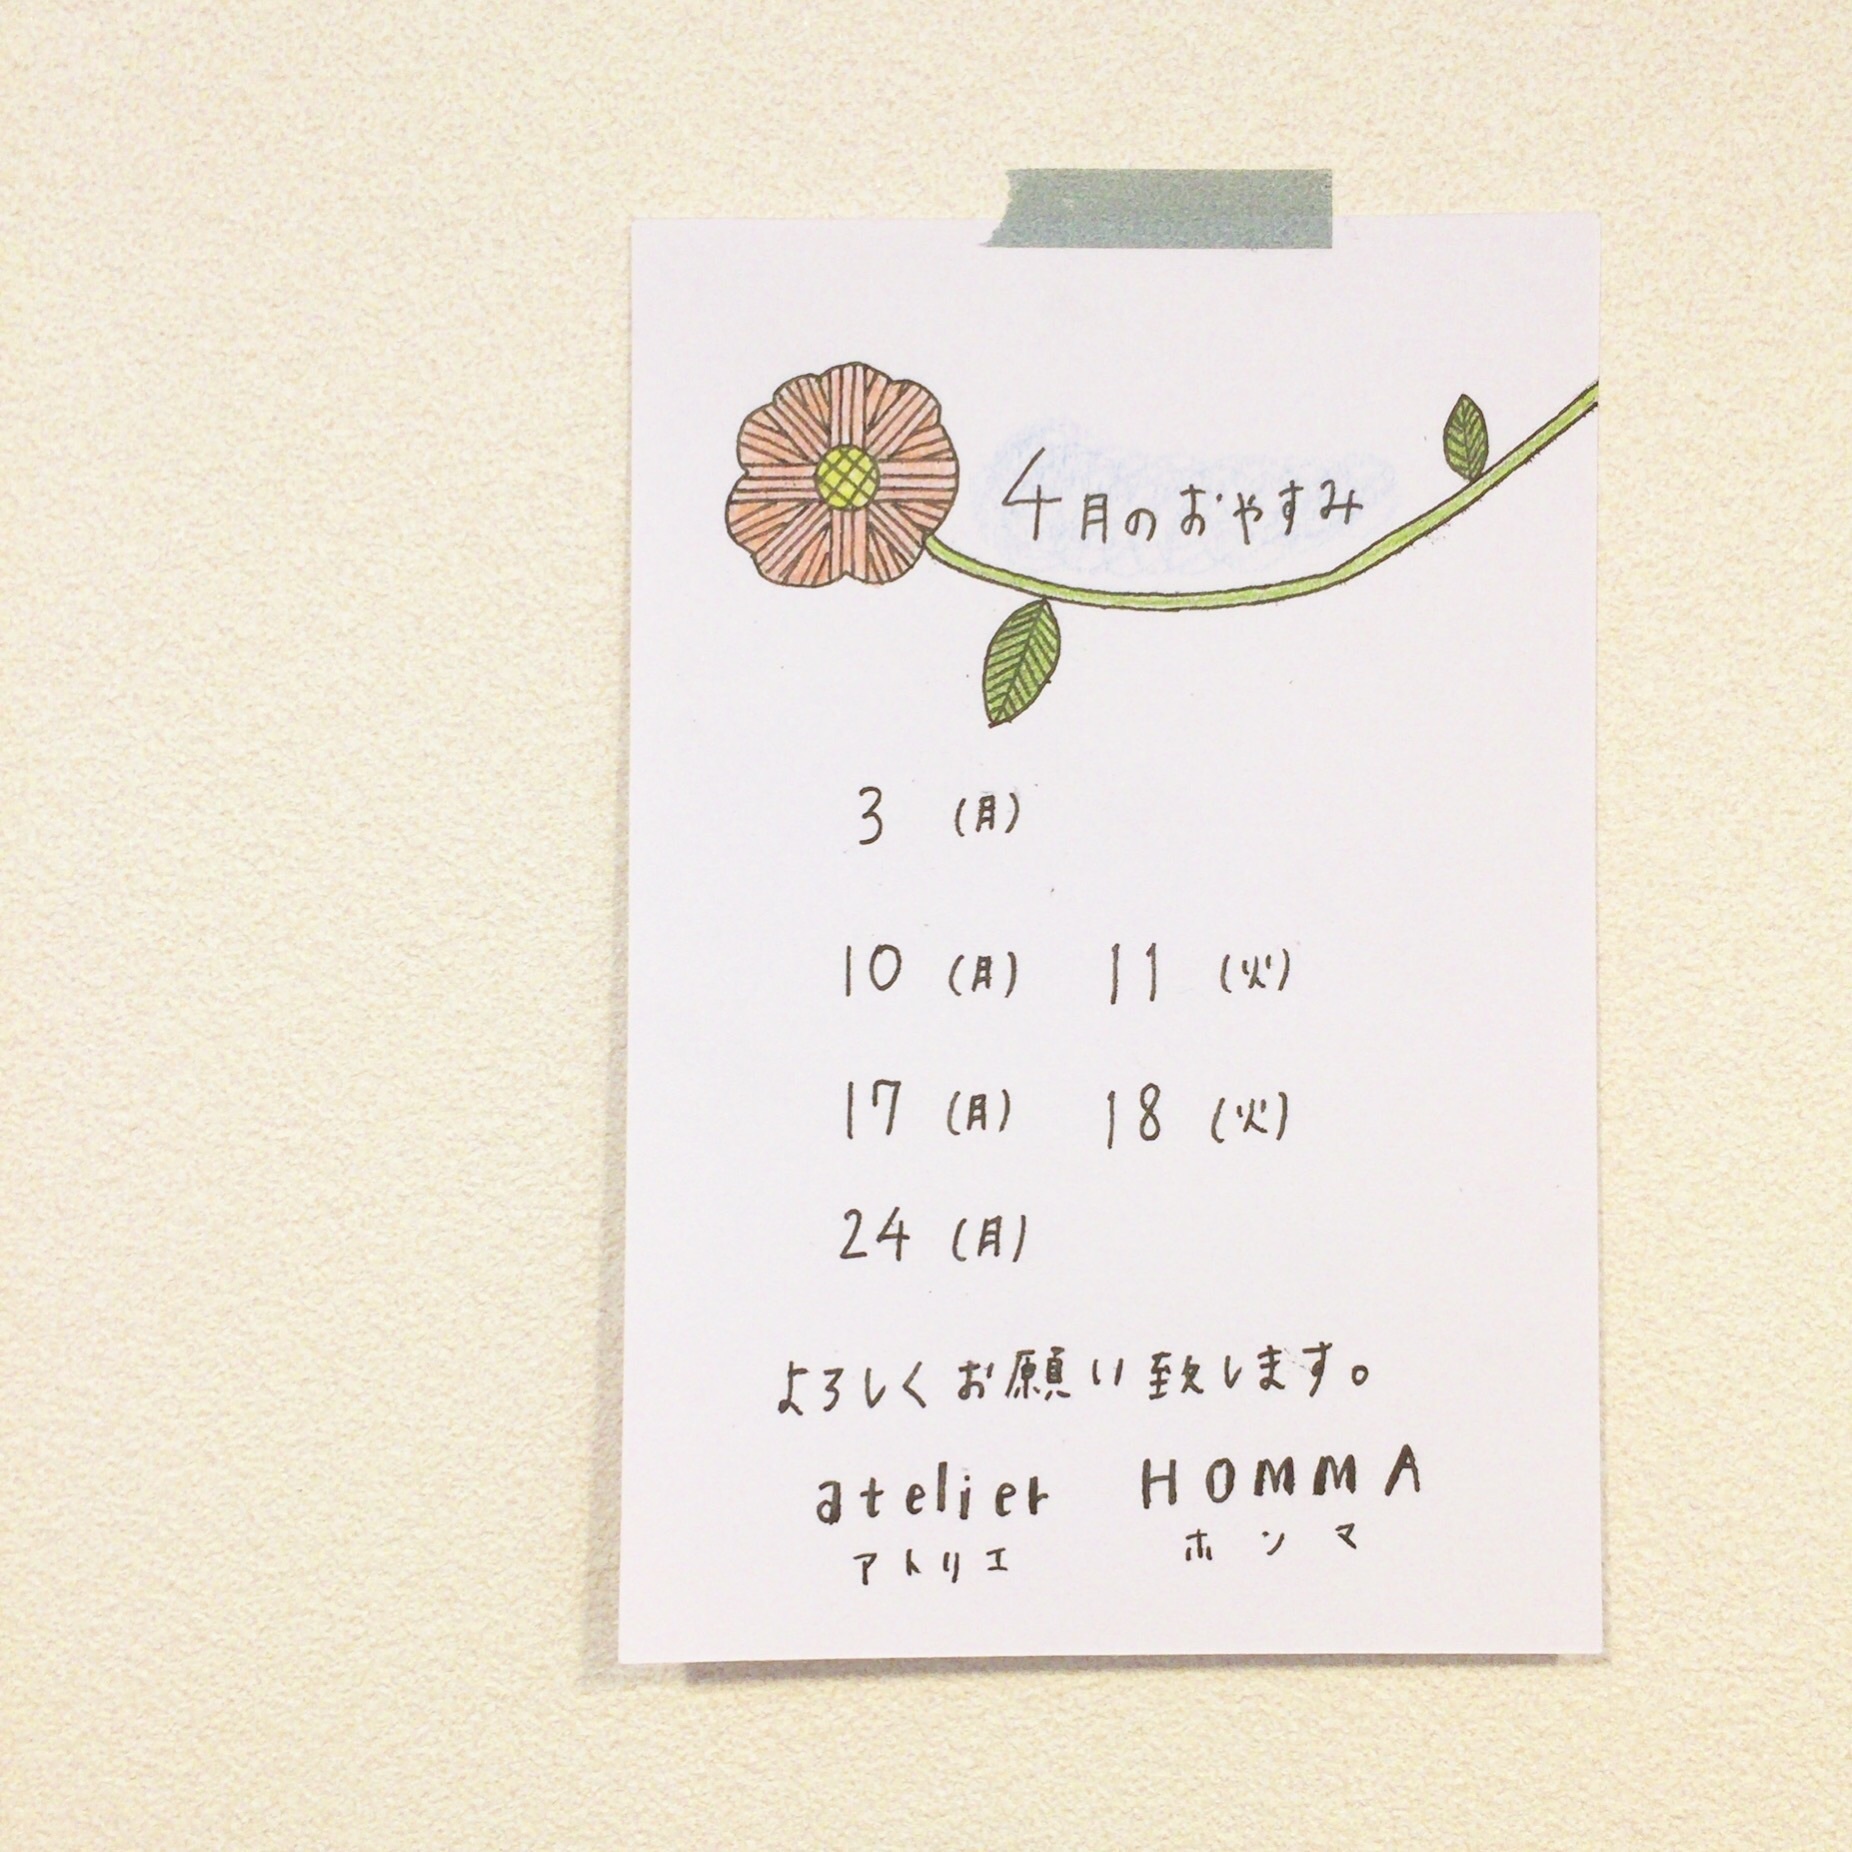 4月のおやすみ
3 (月)
10 (月) 11 (火)
17 (月) 18 (火)
24 (月)
よろしくお願い致します。
atelier HOMMA
アトリエ ホンマ